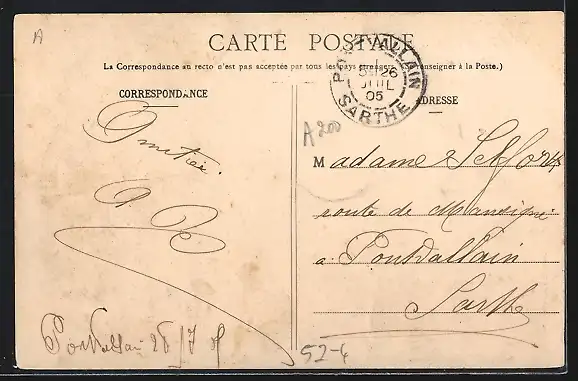 A
CARTE POSTALE
La Correspondance au recto n'est pas acceptée par tous les pays étrangers. (Se renseigner à la Poste.)
CORRESPONDANCE
ADRESSE
PONTVALLAIN
26
JUIL
05
SARTHE
A200
Amitié.
Madame
route de Mansigné
a Pontvallain
Sarthe
Pontvallain 26/7 05
52-4